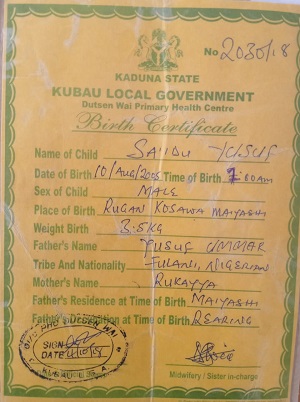 No 2030/18
KADUNA STATE
KUBAU LOCAL GOVERNMENT
Dutsen Wai Primary Health Centre
Birth Certificate
Name of Child SAIDU YUSUF
Date of Birth 10/Aug/2005 Time of Birth 7:80am
Sex of Child MALE
Place of Birth RUGAN KOSAWA MAIYASHI
Weight Birth 3.5Kg
Father's Name YUSUF UMMAR
Tribe And Nationality FULANI, NIGERIAN
Mother's Name RUKAYYA
Father's Residence at Time of Birth MAIYASHI
Father's at Time of Birth REARING
SIGN
DATE
Midwifery / Sister in-charge